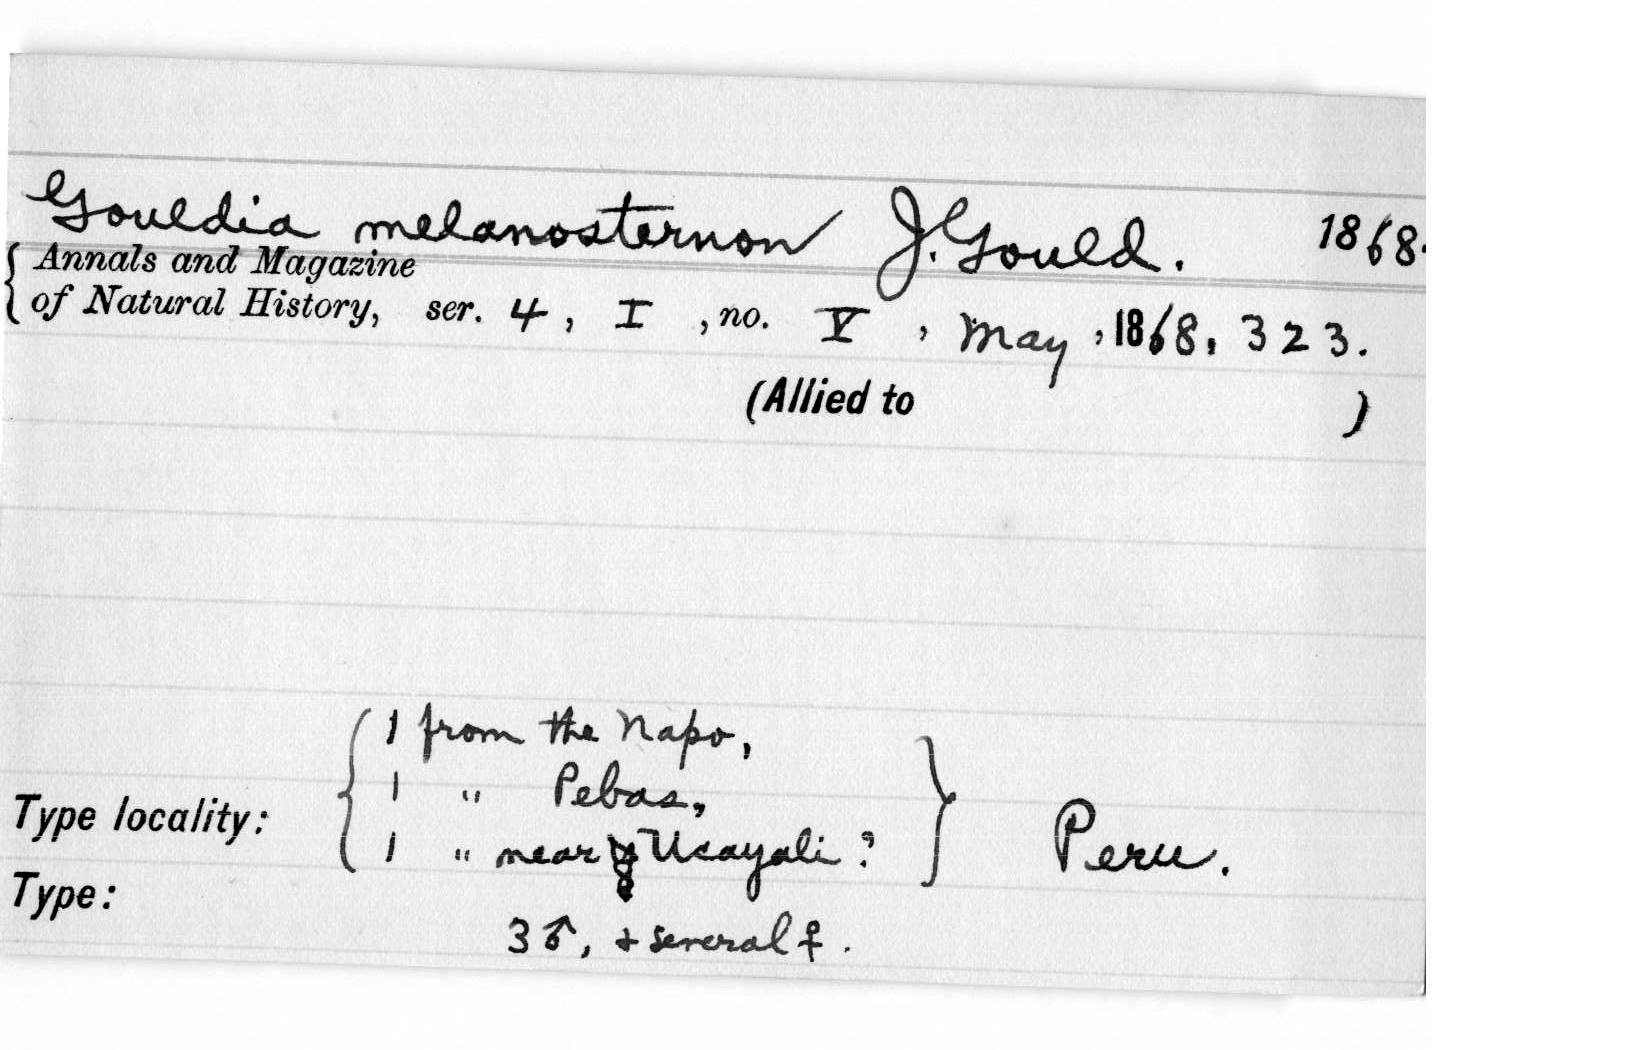 Gouldia melanosternon J. Gould. 1868.
{ Annals and Magazine
of Natural History, ser. 4, I, no. V, May, 1868, 323.
(Allied to )
{ 1 from the Napo,
1 " Pebas,
Type locality: 1 " near Ucayali? } Peru.
Type:
3♂, + several ♀.